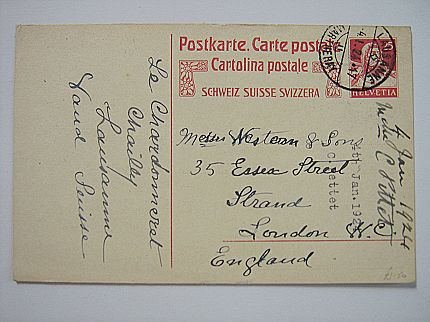 Postkarte. Carte postale
Cartolina postale
SCHWEIZ SUISSE SVIZZERA
HELVETIA
LAUSANNE
Le Chardonneret
Chailly
Lausanne
Vaud Suisse
Messrs Western & Sons
35 Essex Street
Strand
London W.
England
4th Jan. 192
C ettet
4 Jan 1924